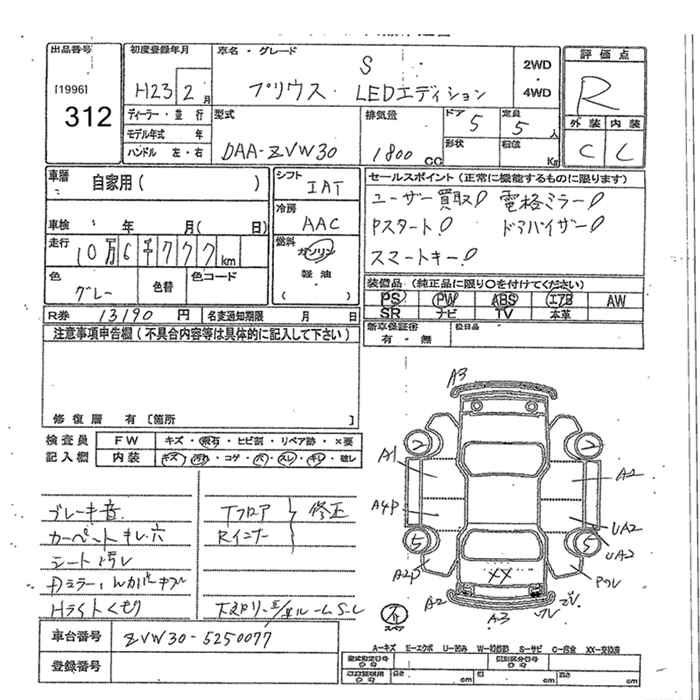 出品番号 初度登録年月 車名・グレード S 2WD ・ 4WD 評価点
[1996] 312 H23 2月 プリウス LEDエディション R
ディーラー・並行 型式 排気量 ドア 5 定員 5人 外装 内装
モデル年式 年 形状 積値 Kg C C
ハンドル 左・右 DAA-ZVW30 1800 CC
車歴 自家用( ) シフト IAT セールスポイント(正常に機能するものに限ります)
冷房 AAC ユーザー買取! 電格ミラー!
車検 年 月( 日) Pスタート! ドアバイザー!
走行 10万6千777km 燃料 ガソリン スマートキー!
色 グレー 色替 色コード 軽油 ( )
装備品(純正品に限り○を付けてください)
PS PW ABS エアB AW
SR ナビ TV 本革
R券 13190円 名変通知期限 月 日 新車保証書 有・無
注意事項申告欄(不具合内容等は具体的に記入して下さい)
修復歴 有 [箇所 ]
検査員 FW キズ・飛石・ヒビ割・リペア跡・×要
記入欄 内装 キズ・汚れ・コゲ・穴・スレ・キレ・破レ
ブレーキ音 Tフロア 修正
カーペットキレ、穴 Rインナー
シート汚レ
Dミラー
Hライトクモリ
車台番号 ZVW30-5250077
登録番号
A3
2 2
A1 A2
A4P UA2
5 5 UA2
A2P XX
A2 A3
スペア
A-キズ E-エクボ U-凹み W-補修跡 S-サビ C-腐食 XX-交換済
型式指定番号 類別区分番号
長さ cm 幅 cm 高さ cm